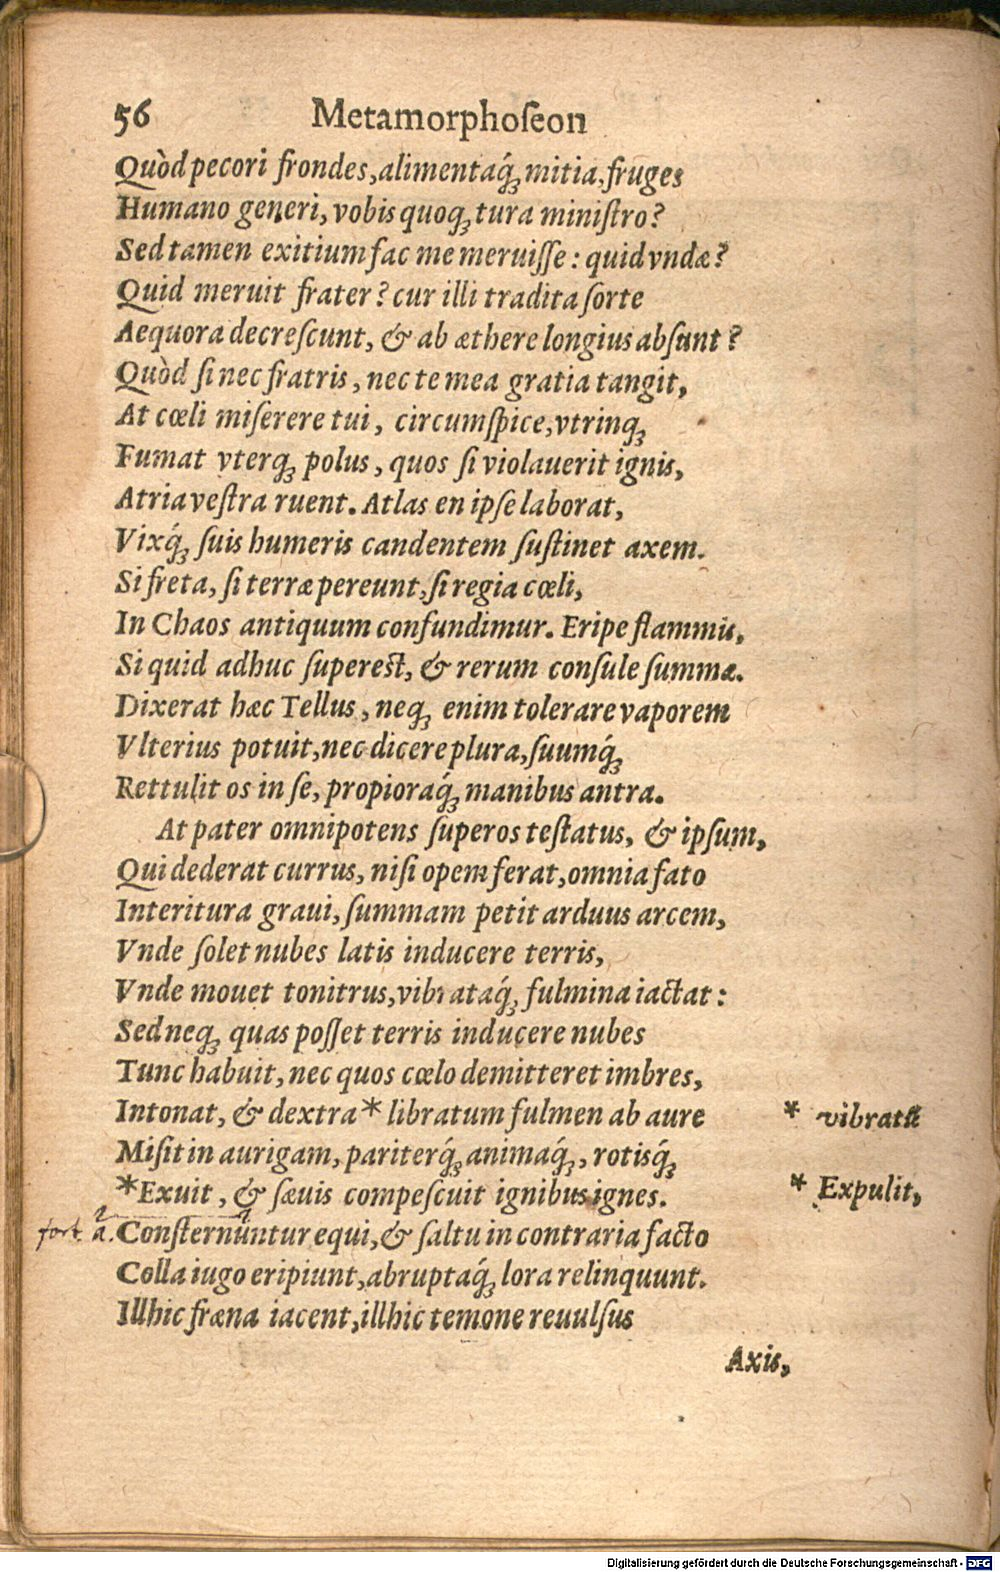 56 Metamorphoſeon
Quòd pecori frondes, alimentaq́ꝫ mitia, fruges
Humano generi, vobis quoqꝫ tura miniſtro?
Sed tamen exitium fac me meruiſſe: quid vndæ?
Quid meruit frater? cur illi tradita ſorte
Aequora decreſcunt, & ab æthere longius abſunt?
Quòd ſi nec fratris, nec te mea gratia tangit,
At cœli miſerere tui, circumſpice, vtrinqꝫ
Fumat vterqꝫ polus, quos ſi violauerit ignis,
Atria veſtra ruent. Atlas en ipſe laborat,
Vixq́ꝫ ſuis humeris candentem ſuſtinet axem.
Si freta, ſi terræ pereunt, ſi regia cœli,
In Chaos antiquum confundimur. Eripe flammis,
Si quid adhuc ſupereſt, & rerum conſule ſummæ.
Dixerat hæc Tellus, neqꝫ enim tolerare vaporem
Vlterius potuit, nec dicere plura, ſuumq́ꝫ
Rettulit os in ſe, propioraq́ꝫ manibus antra.
At pater omnipotens ſuperos teſtatus, & ipſum,
Qui dederat currus, niſi opem ferat, omnia fato
Interitura graui, ſummam petit arduus arcem,
Vnde ſolet nubes latis inducere terris,
Vnde mouet tonitrus, vibrataq́ꝫ fulmina iactat:
Sed neqꝫ quas poſſet terris inducere nubes
Tunc habuit, nec quos cœlo demitteret imbres,
Intonat, & dextra * libratum fulmen ab aure * vibratū
Miſit in aurigam, pariterq́ꝫ animaq́ꝫ, rotisq́ꝫ
*Exuit, & ſæuis compeſcuit ignibus ignes. * Expulit,
fort. a. Conſternuntur equi, & ſaltu in contraria facto
Colla iugo eripiunt, abruptaq́ꝫ lora relinquunt.
Illhic fræna iacent, illhic temone reuulſus
Axis,
Digitalisierung gefördert durch die Deutsche Forschungsgemeinschaft - DFG